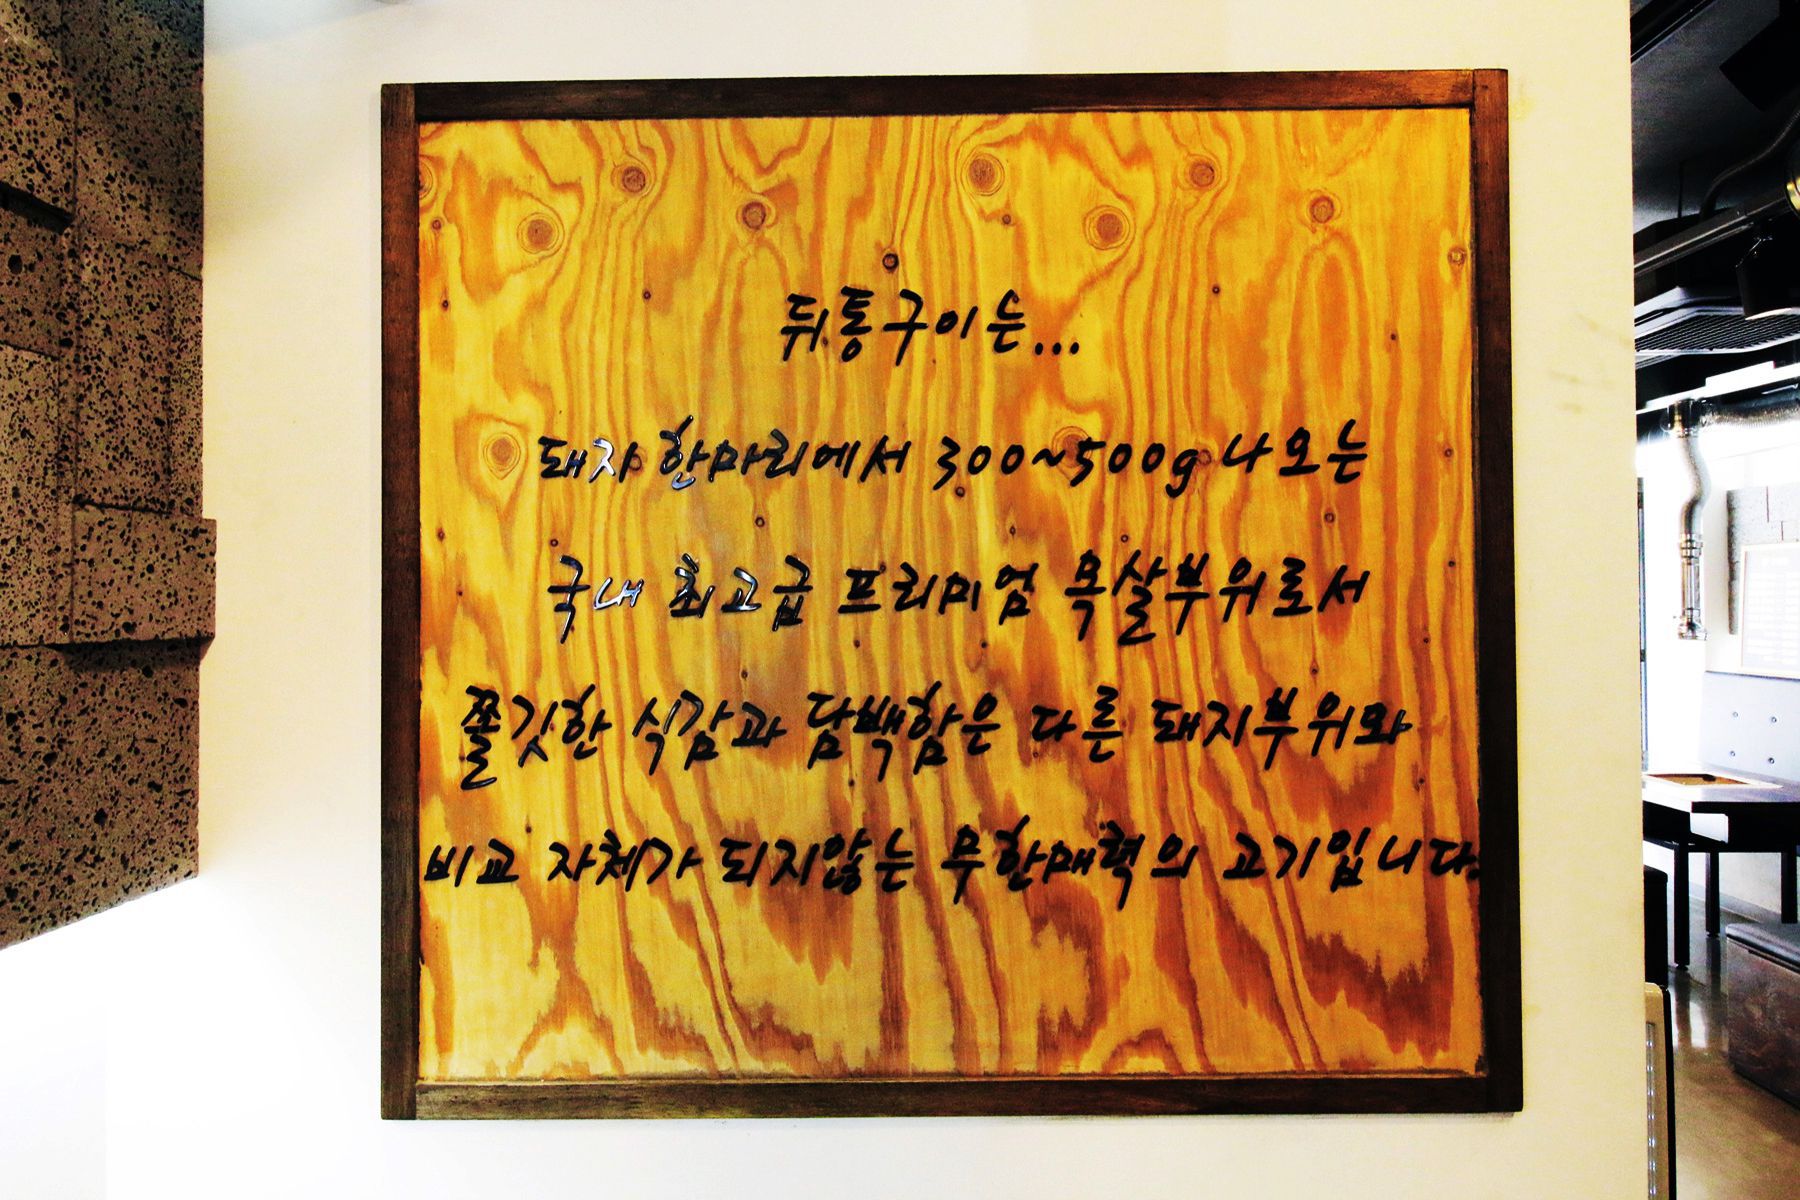 뒤통구이는...
돼지 한마리에서 300~500g 나오는
국내 최고급 프리미엄 목살부위로서
쫄깃한 식감과 담백함은 다른 돼지부위와
비교 자체가 되지않는 무한매력의 고기입니다.